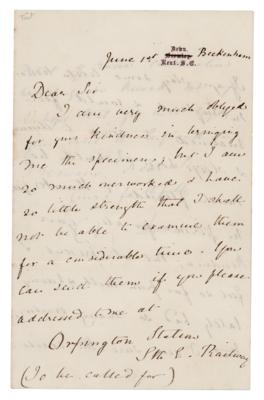 Down,
Bromley
Kent. S.E.
June 1st Beckenham
Dear Sir
I am very much obliged
for your kindness in bringing
me the specimens; but I am
so much overworked & have
so little strength that I shall
not be able to examine them
for a considerable time. You
can send them if you please
addressed to me at
Orpington Station
S.E. Railway
(To be called for)